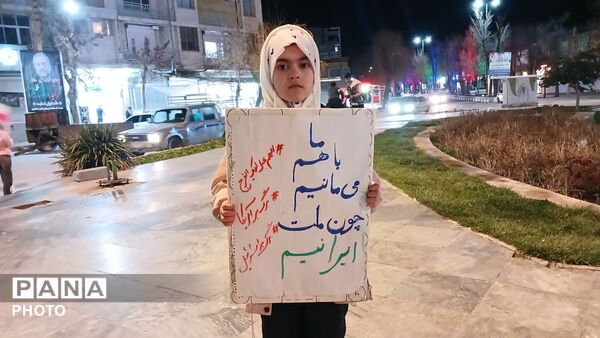 ما
با هم
می مانیم
چون ملت
ایرانیم
#اللهم عجل لولیک الفرج
#مرگ بر آمریکا
#مرگ بر اسرائیل
PANA
PHOTO